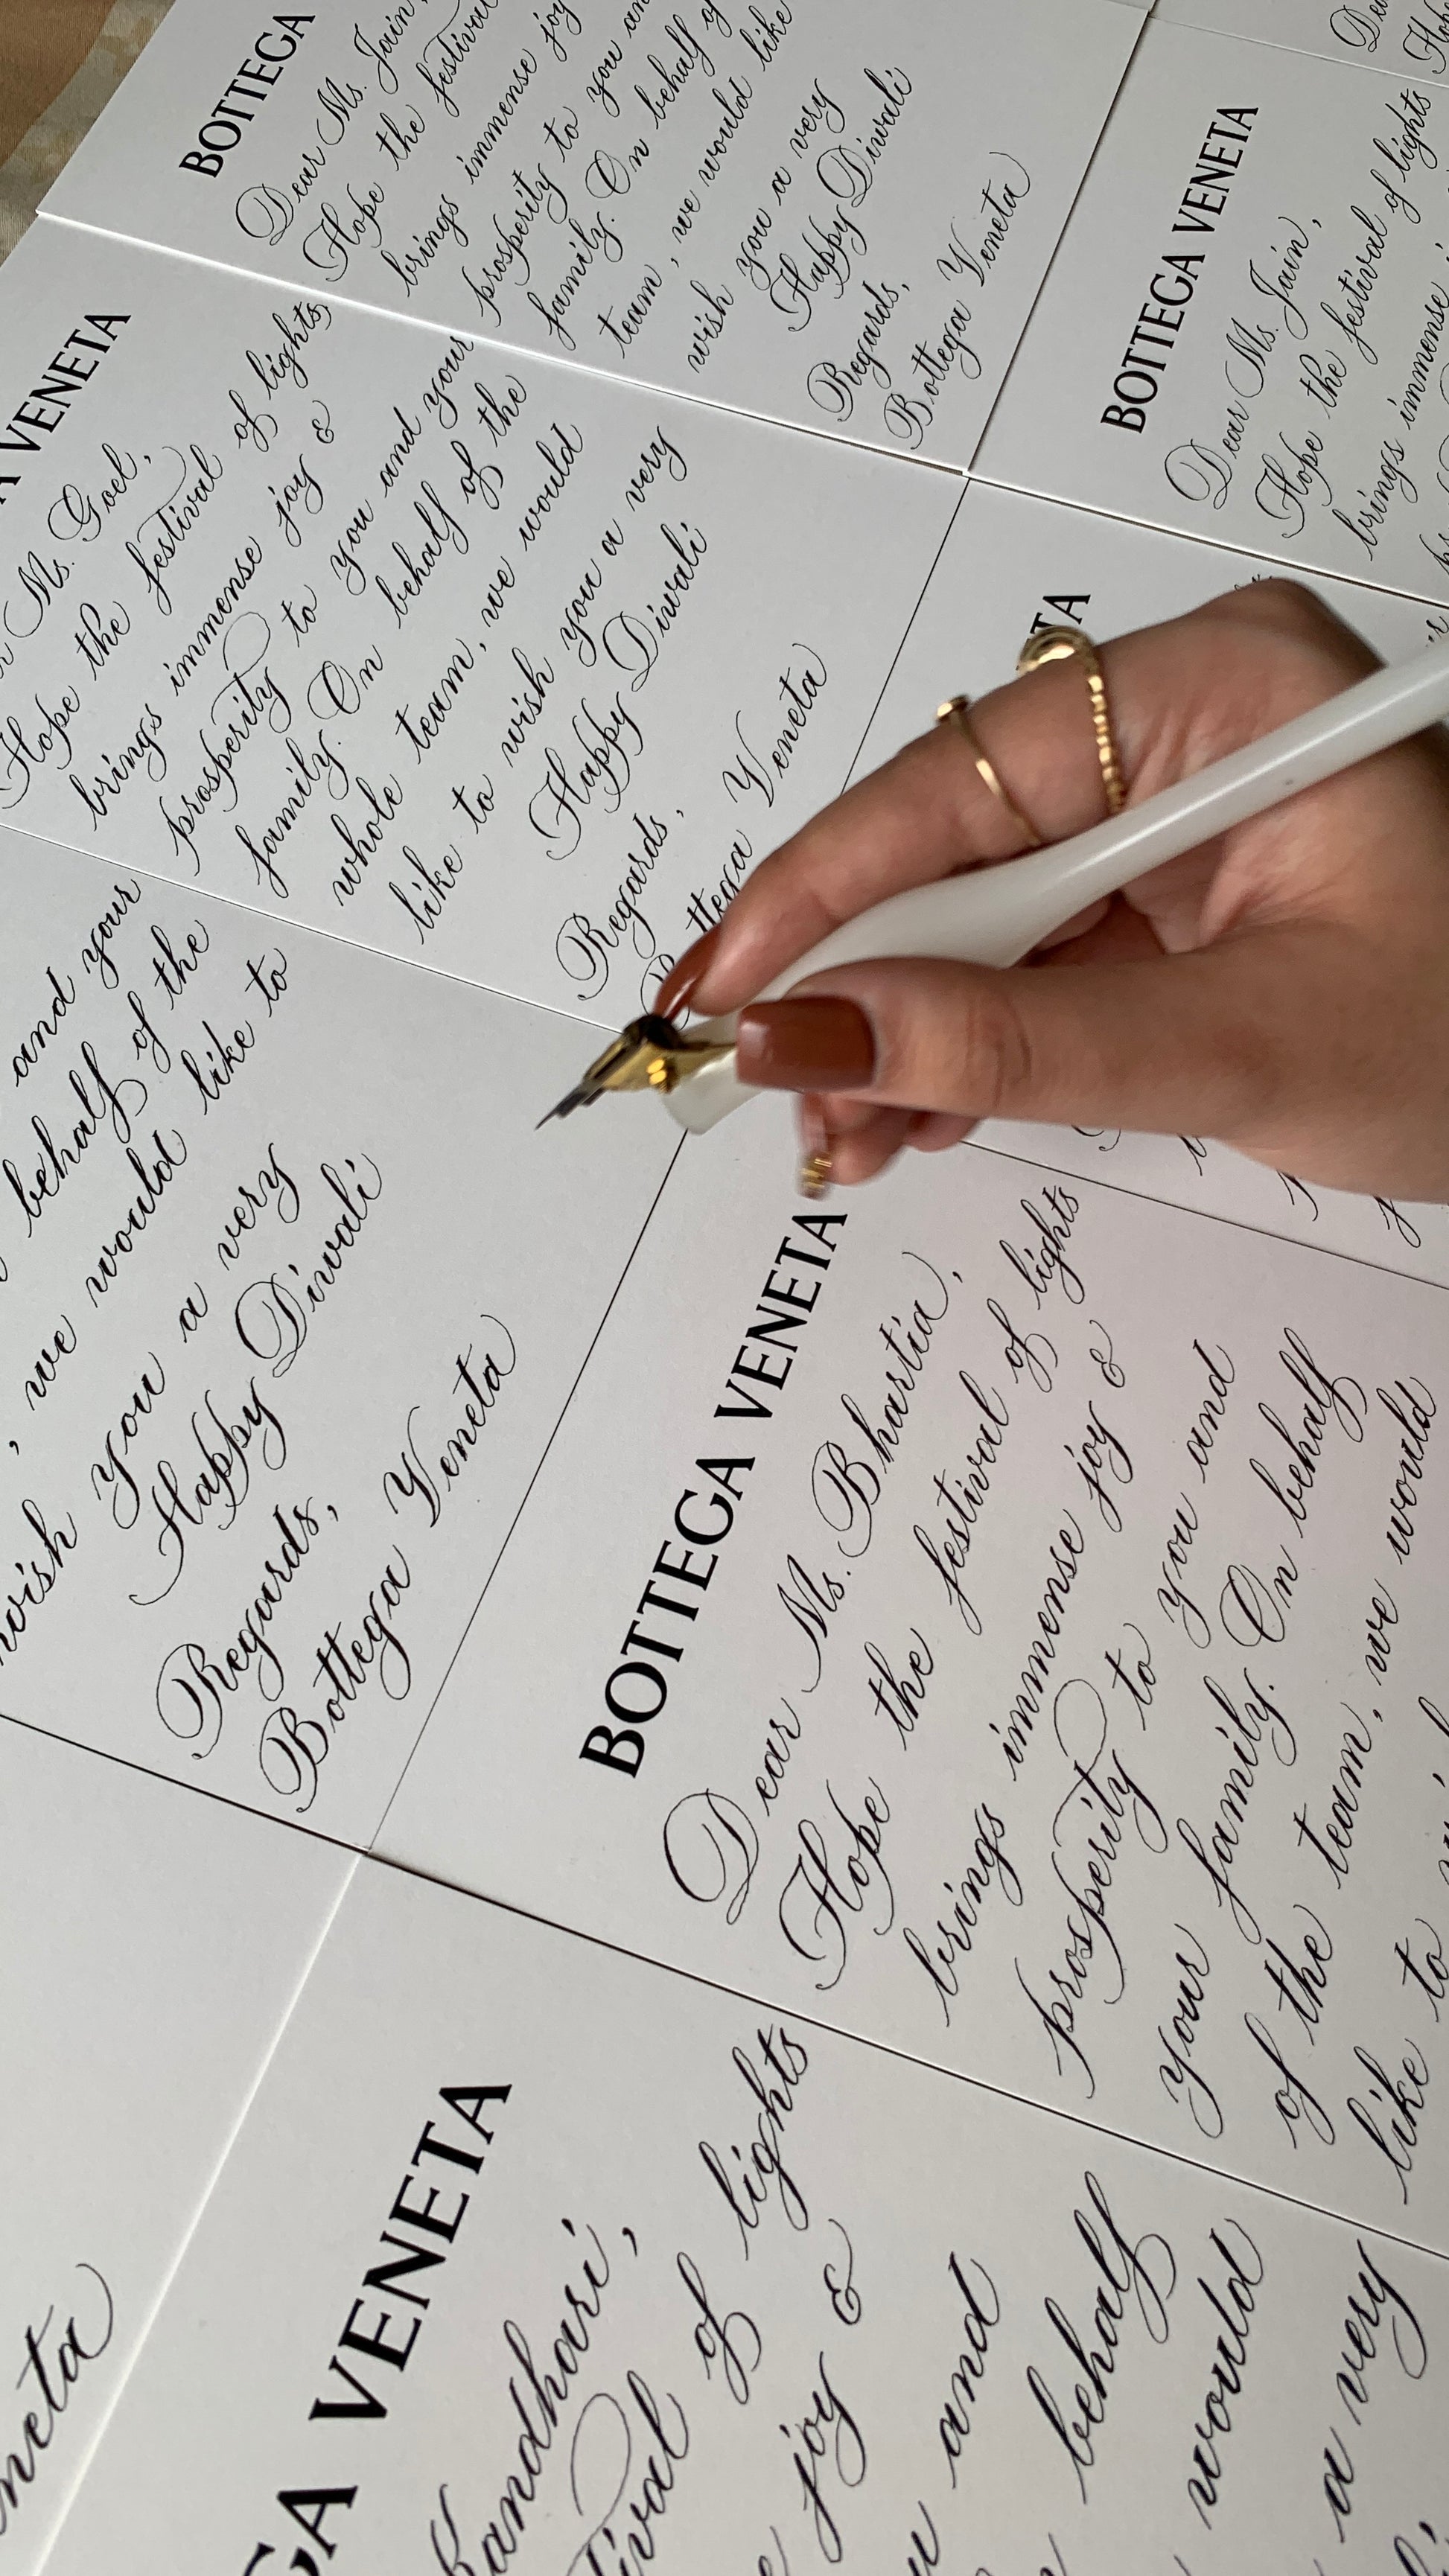 BOTTEGA
Dear Ms. Jain,
Hope the festival
brings immense joy
prosperity to you an
family. On behalf of
team, we would like
wish you a very
Happy Diwali
Regards,
Bottega Veneta
BOTTEGA VENETA
Dear Ms. Jain,
Hope the festival of lights
brings immense
A VENETA
Ms. Goel,
Hope the festival of lights
brings immense joy &
prosperity to you and your
family. On behalf of the
whole team, we would
like to wish you a very
Happy Diwali
Regards,
Bottega Veneta
TA
and your
behalf of the
, we would like to
wish you a very
Happy Diwali
Regards,
Bottega Veneta
BOTTEGA VENETA
Dear Ms. Bhartia,
Hope the festival of lights
brings immense joy &
prosperity to you and
your family. On behalf
of the team, we would
like to
GA VENETA
Kandhari,
tival of lights
joy &
and
behalf
would
a very
neta